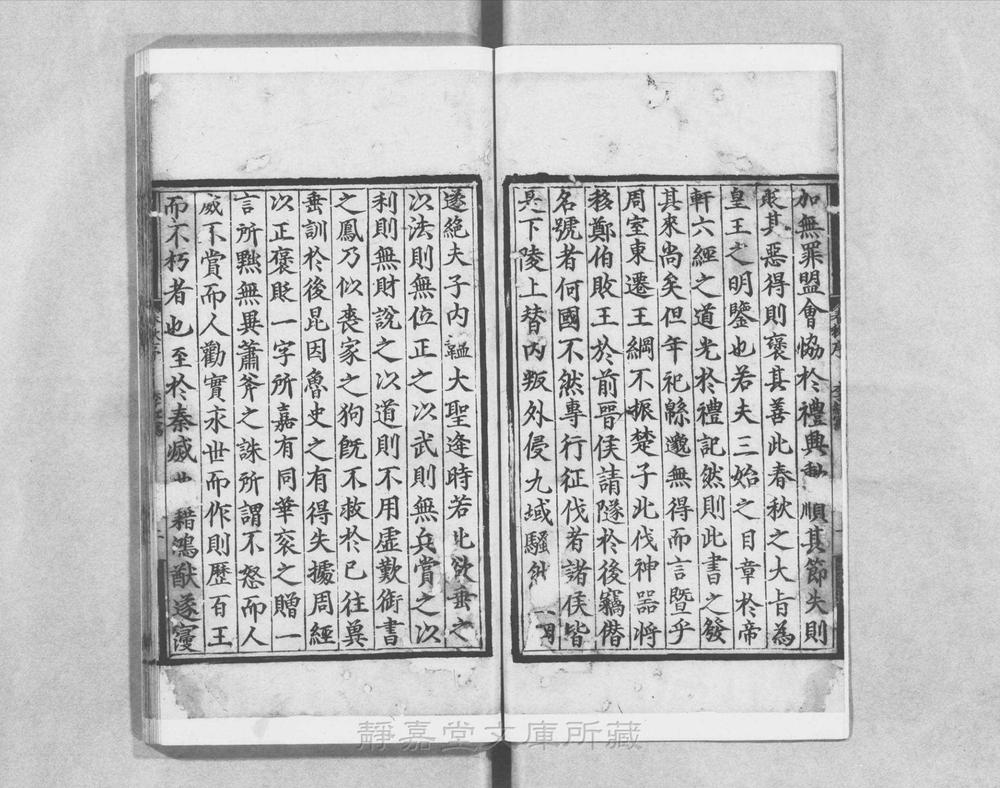 加無罪盟會恊於禮典動 順其節失則
貶其惡得則褒其善此春秋之大旨為
皇王之明鑒也若夫三始之目章於帝
軒六經之道光於禮記然則此書之發
其來尚矣但年祀緜邈無得而言暨乎
周室東遷王綱不振楚子北伐神器將
移鄭伯敗王於前晉侯請隧於後竊僭
名號者何國不然專行征伐者諸侯皆
是下陵上替內叛外侵九域騷然
遂絕夫子內韞大聖逢時若此欲垂之
以法則無位正之以武則無兵賞之以
利則無財說之以道則不用虛歎銜書
之鳳乃似喪家之狗旣不救於已往冀
垂訓於後昆因魯史之有得失據周經
以正褒貶一字所嘉有同華衮之贈一
言所黜無異蕭斧之誅所謂不怒而人
威不賞而人勸實永世而作則歷百王
而不朽者也至於秦滅 籍鴻猷遂寖
靜嘉堂文庫所藏